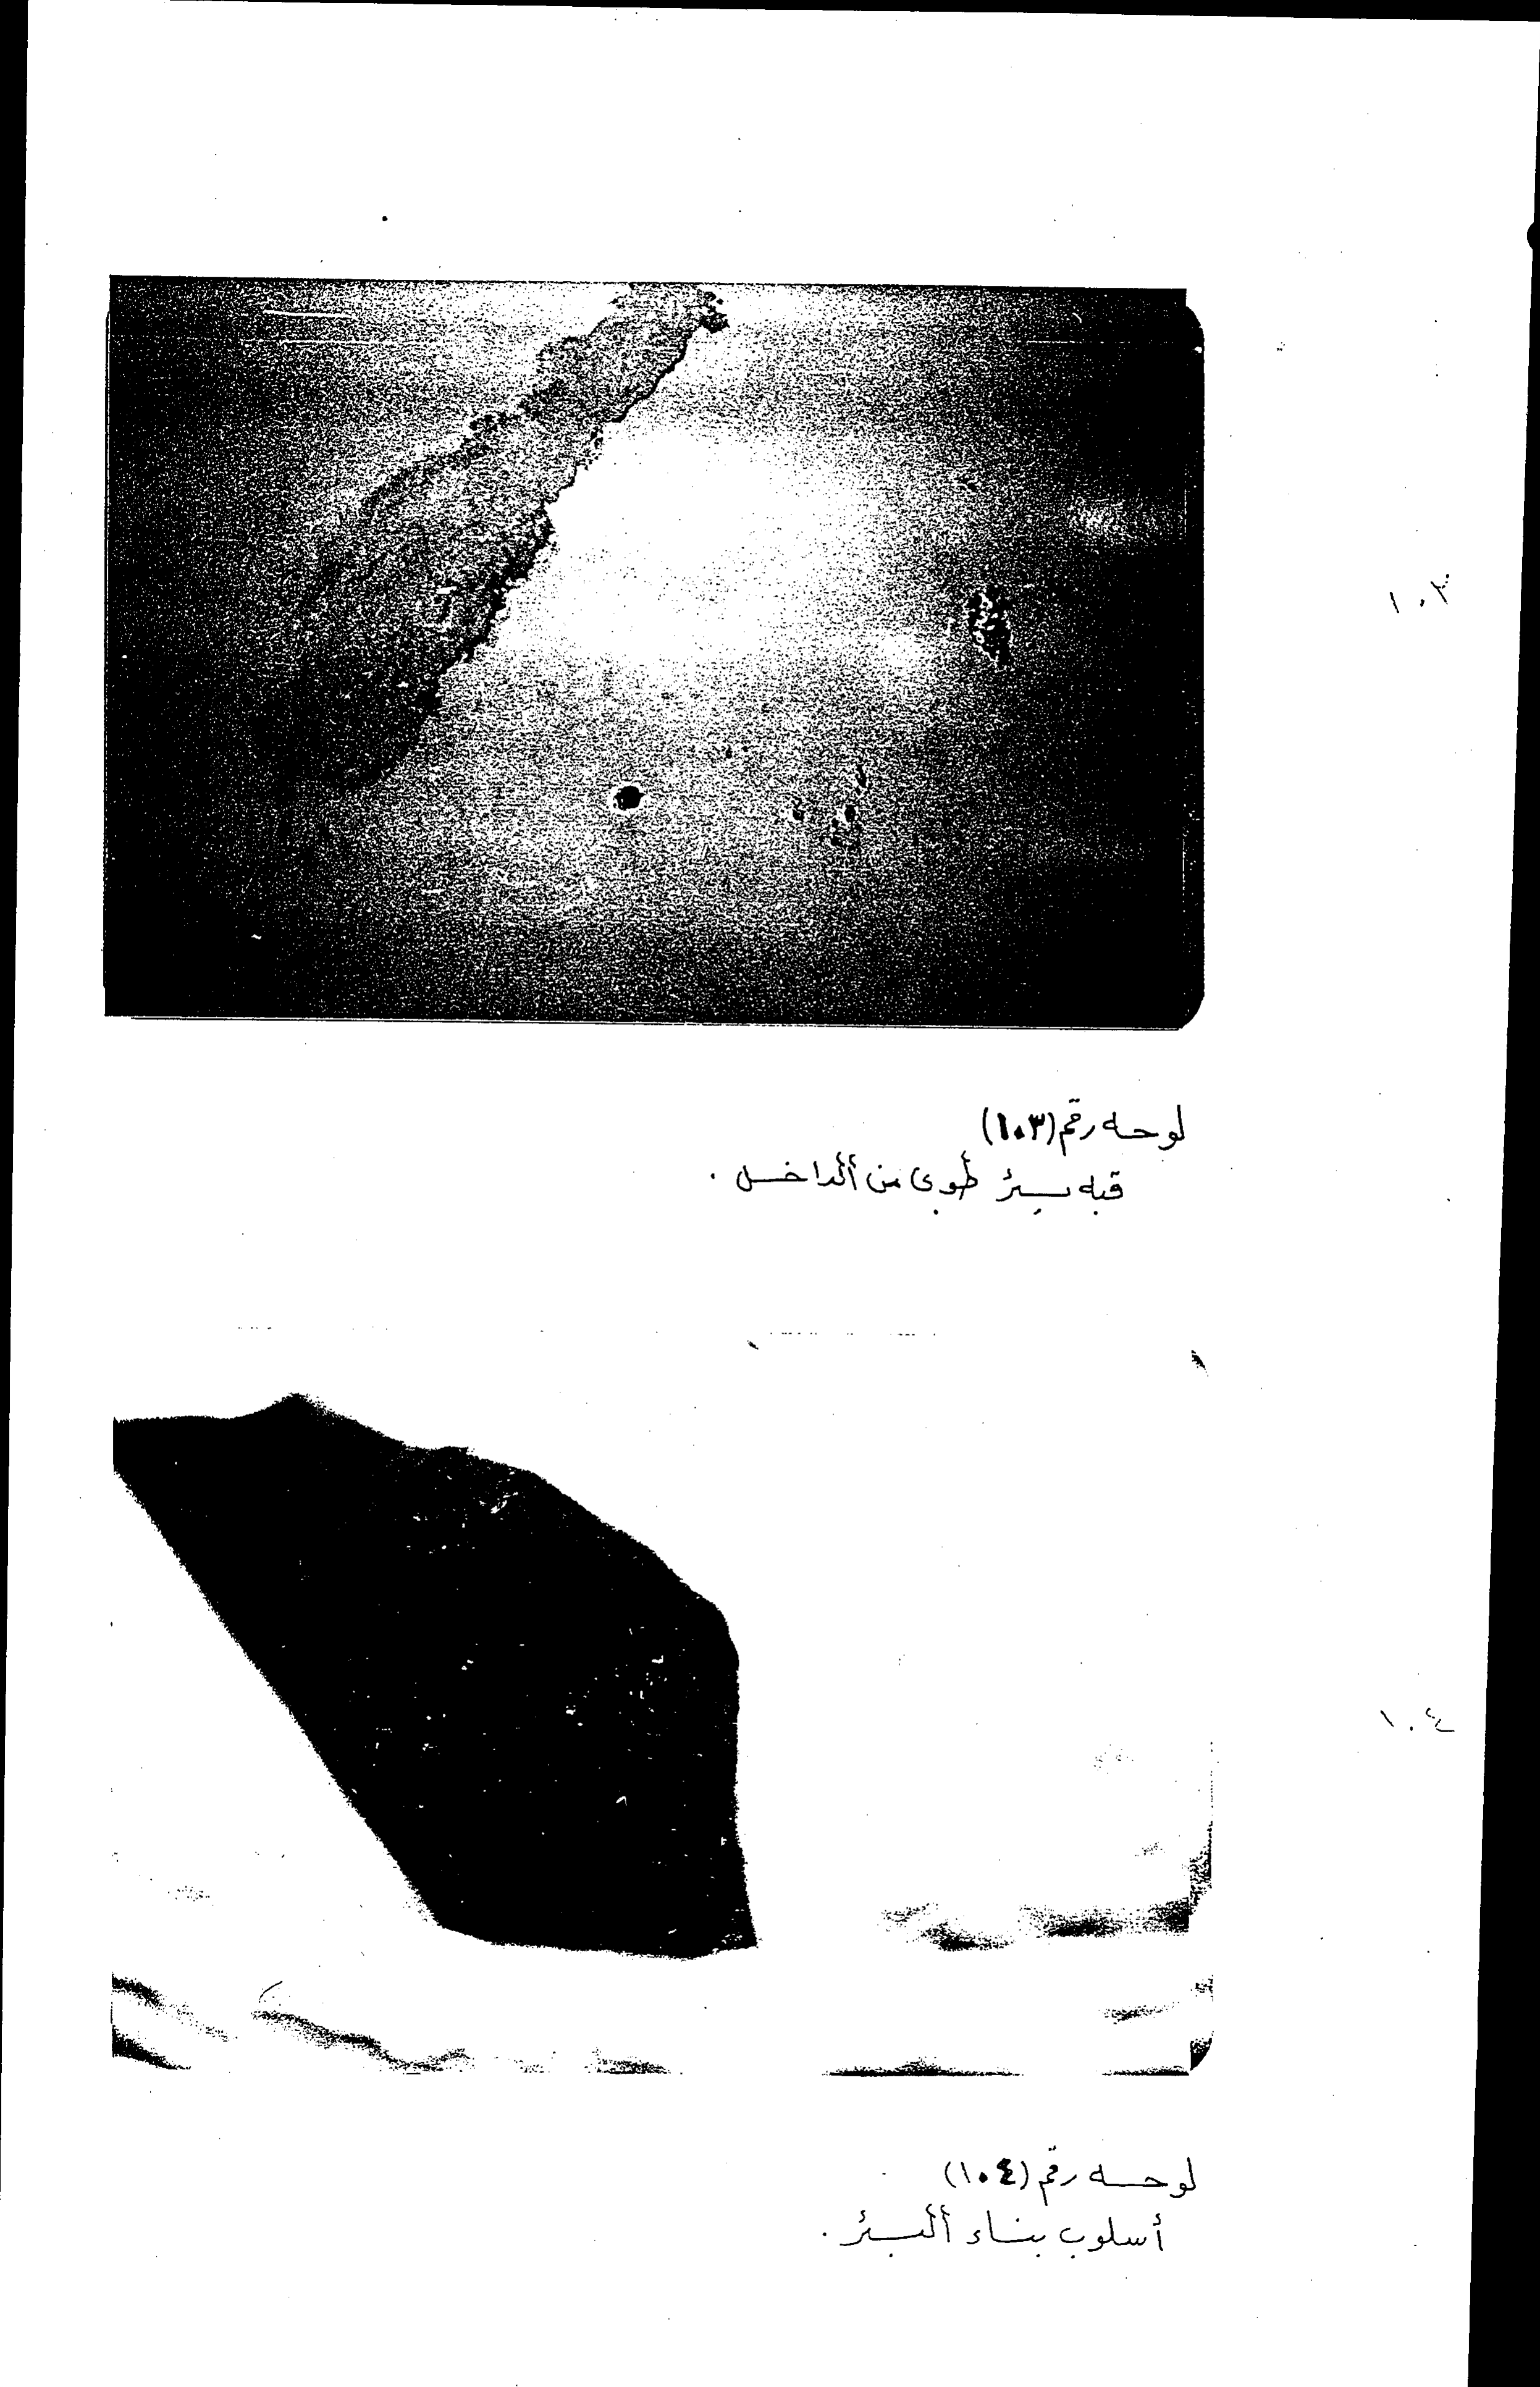 ١٠٣
لوحه رقم (١٠٣)
قبه بئر طوى من ألداخل .
١٠٤
لوحه رقم (١٠٤)
أسلوب بناء ألبئر .